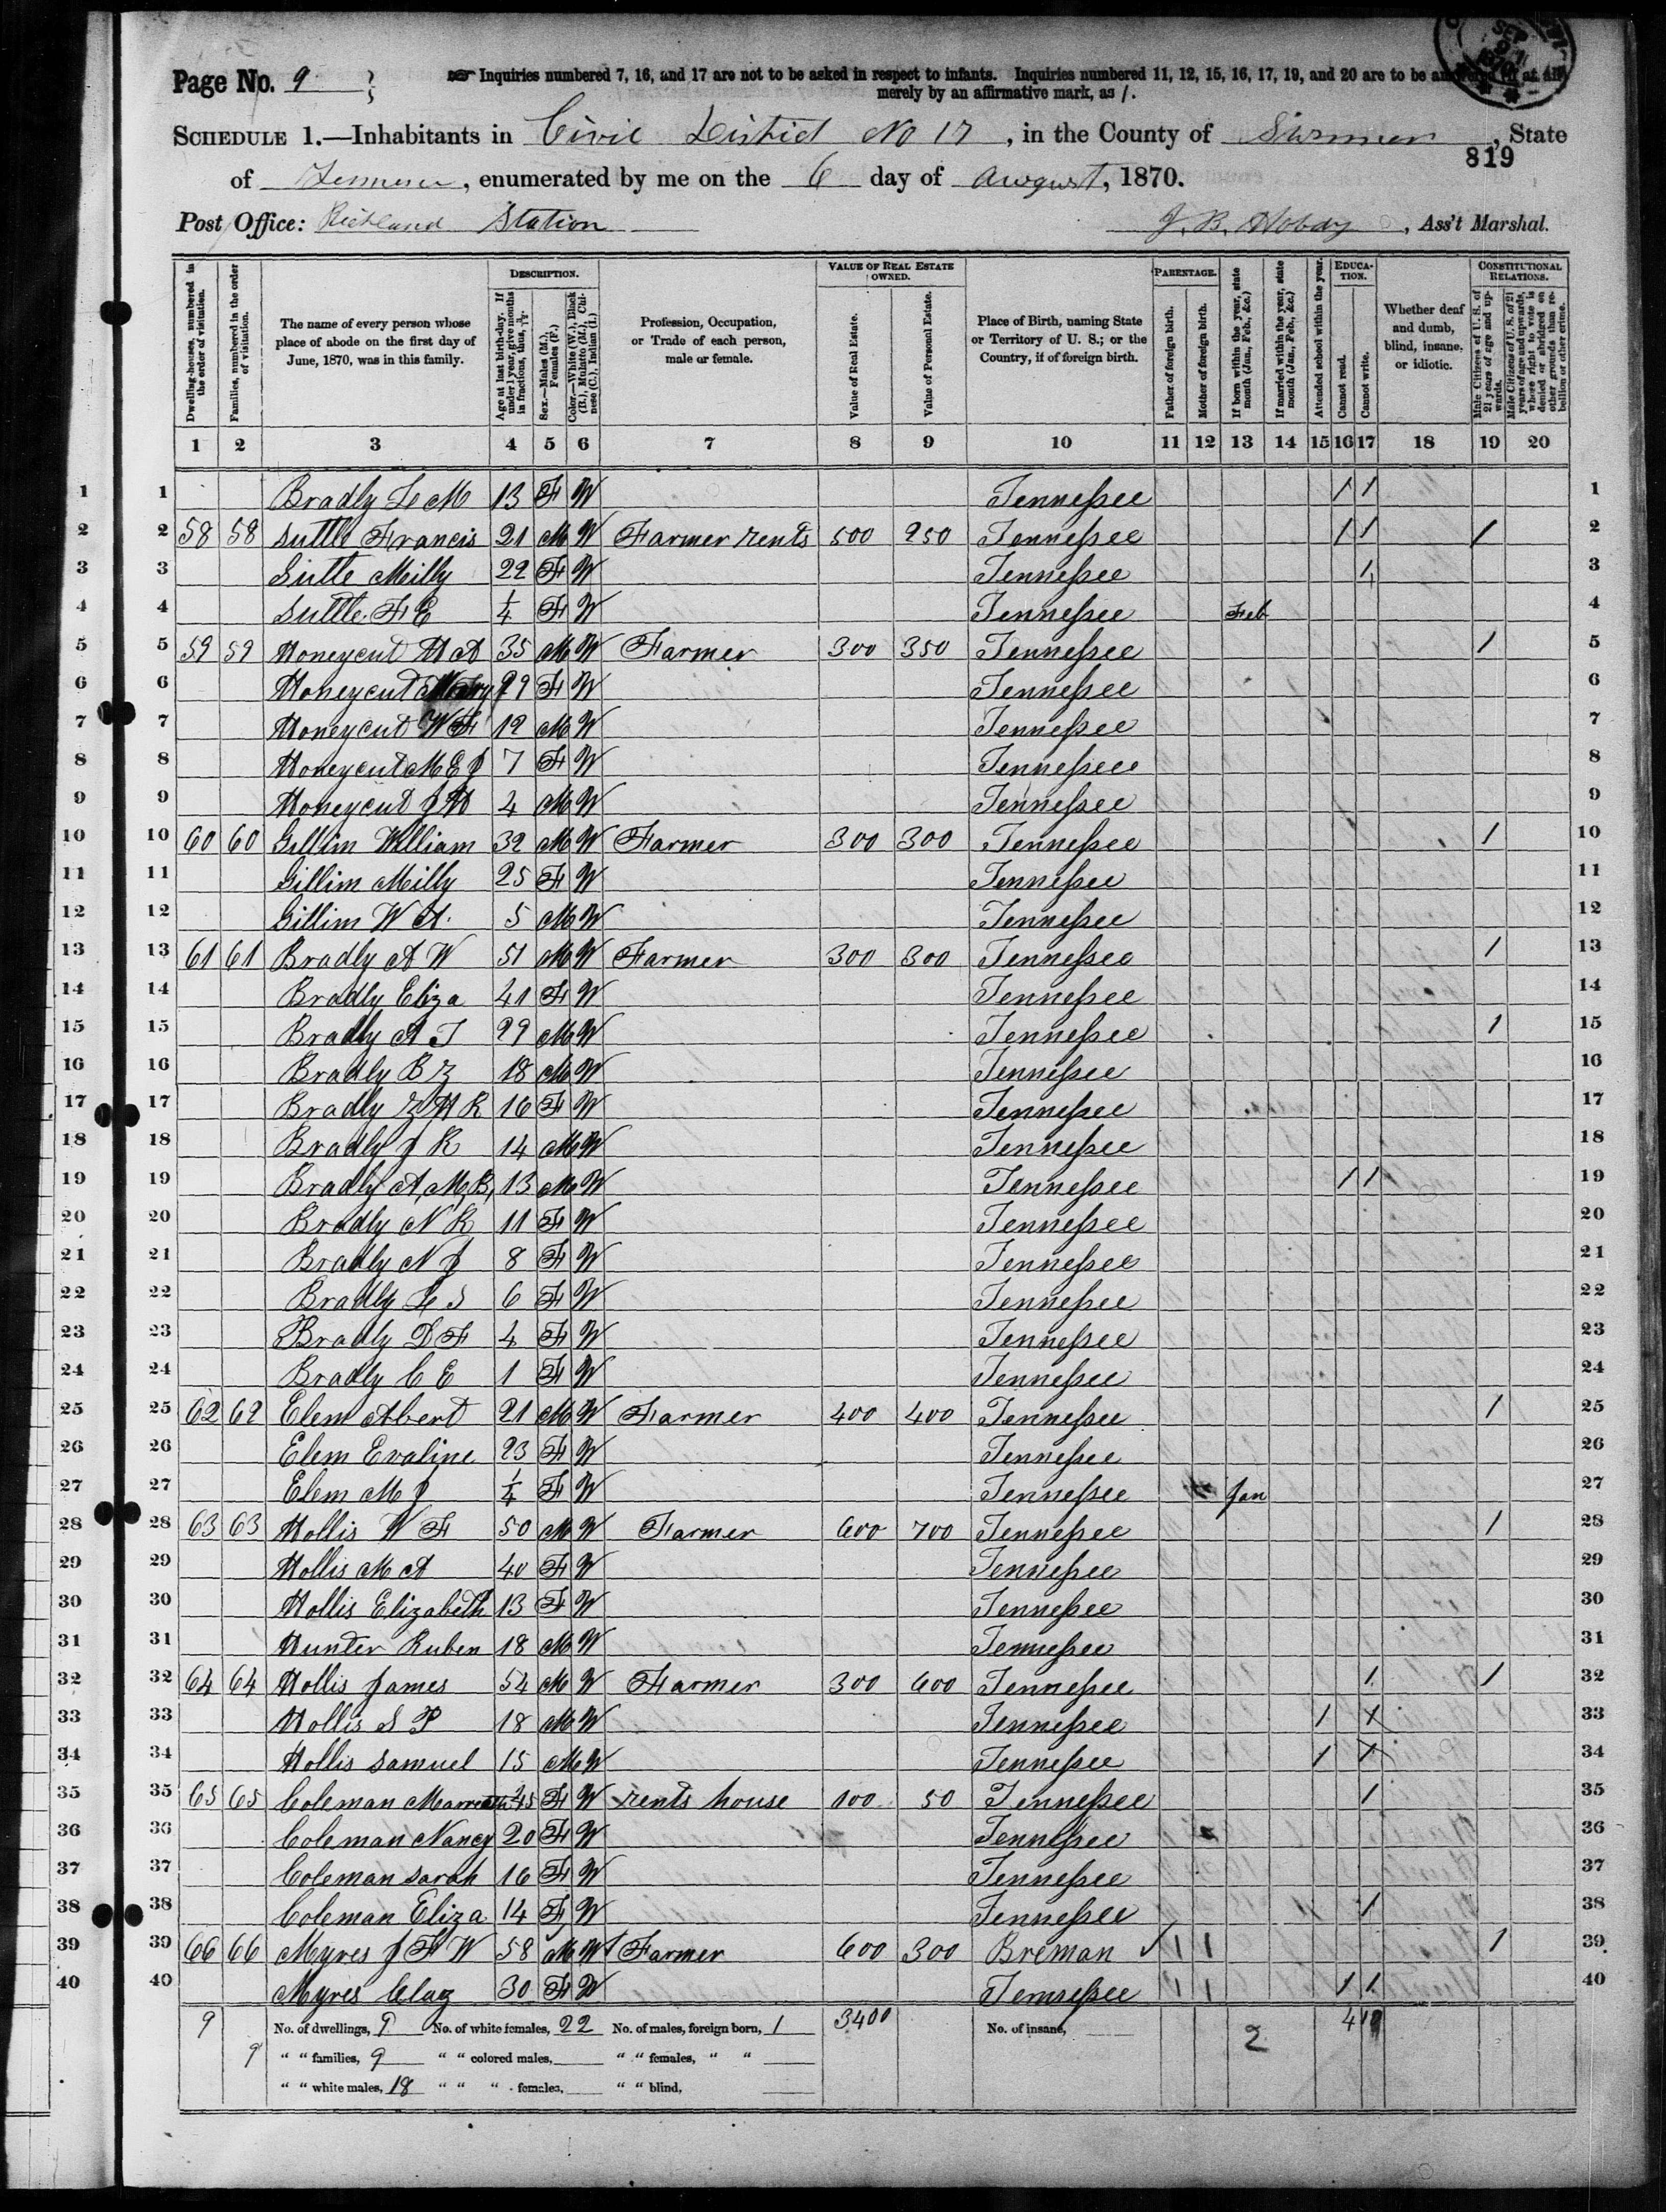 Page No. 9
Inquiries numbered 7, 16, and 17 are not to be asked in respect to infants. Inquiries numbered 11, 12, 15, 16, 17, 19, and 20 are to be answered (if at all)
merely by an affirmative mark, as /.
SCHEDULE 1.—Inhabitants in Civil District No 17, in the County of Sumner, State
819
of Tennessee, enumerated by me on the 6 day of August, 1870.
Post Office: Richland Station J. B. Hobdy, Ass't Marshal.
Dwelling-houses, numbered in the order of visitation.
Families, numbered in the order of visitation.
The name of every person whose place of abode on the first day of June, 1870, was in this family.
DESCRIPTION.
Age at last birth-day. If under 1 year, give months in fractions, thus, 3/12.
Sex.—Males (M.), Females (F.)
Color.—White (W.), Black (B.), Mulatto (M.), Chinese (C.), Indian (I.)
Profession, Occupation, or Trade of each person, male or female.
VALUE OF REAL ESTATE OWNED.
Value of Real Estate.
Value of Personal Estate.
Place of Birth, naming State or Territory of U. S.; or the Country, if of foreign birth.
PARENTAGE.
Father of foreign birth.
Mother of foreign birth.
If born within the year, state month (Jan., Feb., &c.)
If married within the year, state month (Jan., Feb., &c.)
Attended school within the year.
EDUCATION.
Cannot read.
Cannot write.
Whether deaf and dumb, blind, insane, or idiotic.
CONSTITUTIONAL RELATIONS.
Male Citizens of U. S. of 21 years of age and upwards.
Male Citizens of U. S. of 21 years of age and upwards, whose right to vote is denied or abridged on other grounds than rebellion or other crime.
1 2 3 4 5 6 7 8 9 10 11 12 13 14 15 16 17 18 19 20
1 1 Bradly L M 13 F W Tennessee / / 1
2 2 58 58 Suttle Francis 21 M W Farmer rents 500 250 Tennessee / / / 2
3 3 Sutte Milly 22 F W Tennessee / 3
4 4 Suttle F E 1/4 F W Tennessee Feb 4
5 5 59 59 Honeycut H A 35 M W Farmer 300 350 Tennessee / 5
6 6 Honeycut Mary 29 F W Tennessee 6
7 7 Honeycut W F 12 M W Tennessee 7
8 8 Honeycut M E J 7 F W Tennessee 8
9 9 Honeycut J H 4 M W Tennessee 9
10 10 60 60 Gillim William 32 M W Farmer 300 300 Tennessee / 10
11 11 Gillim Milly 25 F W Tennessee 11
12 12 Gillim W A 5 M W Tennessee 12
13 13 61 61 Bradly A W 51 M W Farmer 300 300 Tennessee / 13
14 14 Bradly Eliza 41 F W Tennessee 14
15 15 Bradly A J 22 M W Tennessee / 15
16 16 Bradly B Z 18 M W Tennessee 16
17 17 Bradly Z H R 16 F W Tennessee 17
18 18 Bradly J K 14 M W Tennessee 18
19 19 Bradly A, M, B, 13 M W Tennessee / / 19
20 20 Bradly N K 11 F W Tennessee 20
21 21 Bradly N J 8 F W Tennessee 21
22 22 Bradly L S 6 F W Tennessee 22
23 23 Bradly D F 4 F W Tennessee 23
24 24 Bradly C E 1 F W Tennessee 24
25 25 62 62 Elem Albert 21 M W Farmer 400 400 Tennessee / 25
26 26 Elem Evaline 23 F W Tennessee 26
27 27 Elem M J 1/4 F W Tennessee Jan 27
28 28 63 63 Hollis W F 50 M W Farmer 600 700 Tennessee / 28
29 29 Hollis M A 40 F W Tennessee 29
30 30 Hollis Elizabeth 13 F W Tennessee 30
31 31 Hunter Ruben 18 M W Tennessee 31
32 32 64 64 Hollis James 54 M W Farmer 300 600 Tennessee / / 32
33 33 Hollis S P 18 M W Tennessee / / 33
34 34 Hollis Samuel 15 M W Tennessee / / 34
35 35 65 65 Coleman 45 F W rents house 100 50 Tennessee / 35
36 36 Coleman Nancy 20 F W Tennessee 36
37 37 Coleman Sarah 16 F W Tennessee 37
38 38 Coleman Eliza 14 F W Tennessee / 38
39 39 66 66 Myres J F W 58 M W Farmer 600 300 Breman / / / 39
40 40 Myres Clay 30 F W Temsessee / / / / 40
9 No. of dwellings, 9 No. of white females, 22 No. of males, foreign born, 1 3400 No. of insane, 2 4 10
9 " " families, 9 " " colored males, " " females, " "
" " white males, 18 " " " females, " " blind,